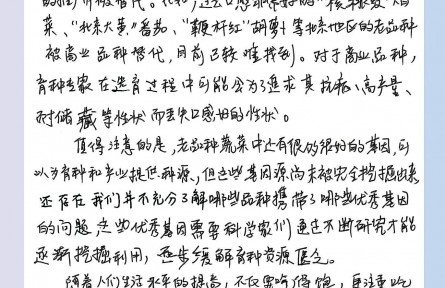 菜、"北京大黄"番茄、"鞭杆红"胡萝卜等北京地区的老品种
被商业品种替代,目前已较难找到。对于商业品种,
育种专家在选育过程中可能会为了追求其抗病、高产量、
耐储藏等性状而丢失口感好的性状。
值得注意的是,老品种蔬菜中还有很多很好的基因,可
以为育种和产业提供种源,但这些基因源尚未被完全挖掘出来,
还存在我们并不充分了解哪些品种携带了哪些优秀基因
的问题,这些优秀基因需要科学家们通过不断研究才能
逐渐挖掘利用,逐步缓解育种资源匮乏。
随着人们生活水平的提高,不仅需吃得饱,更注重吃